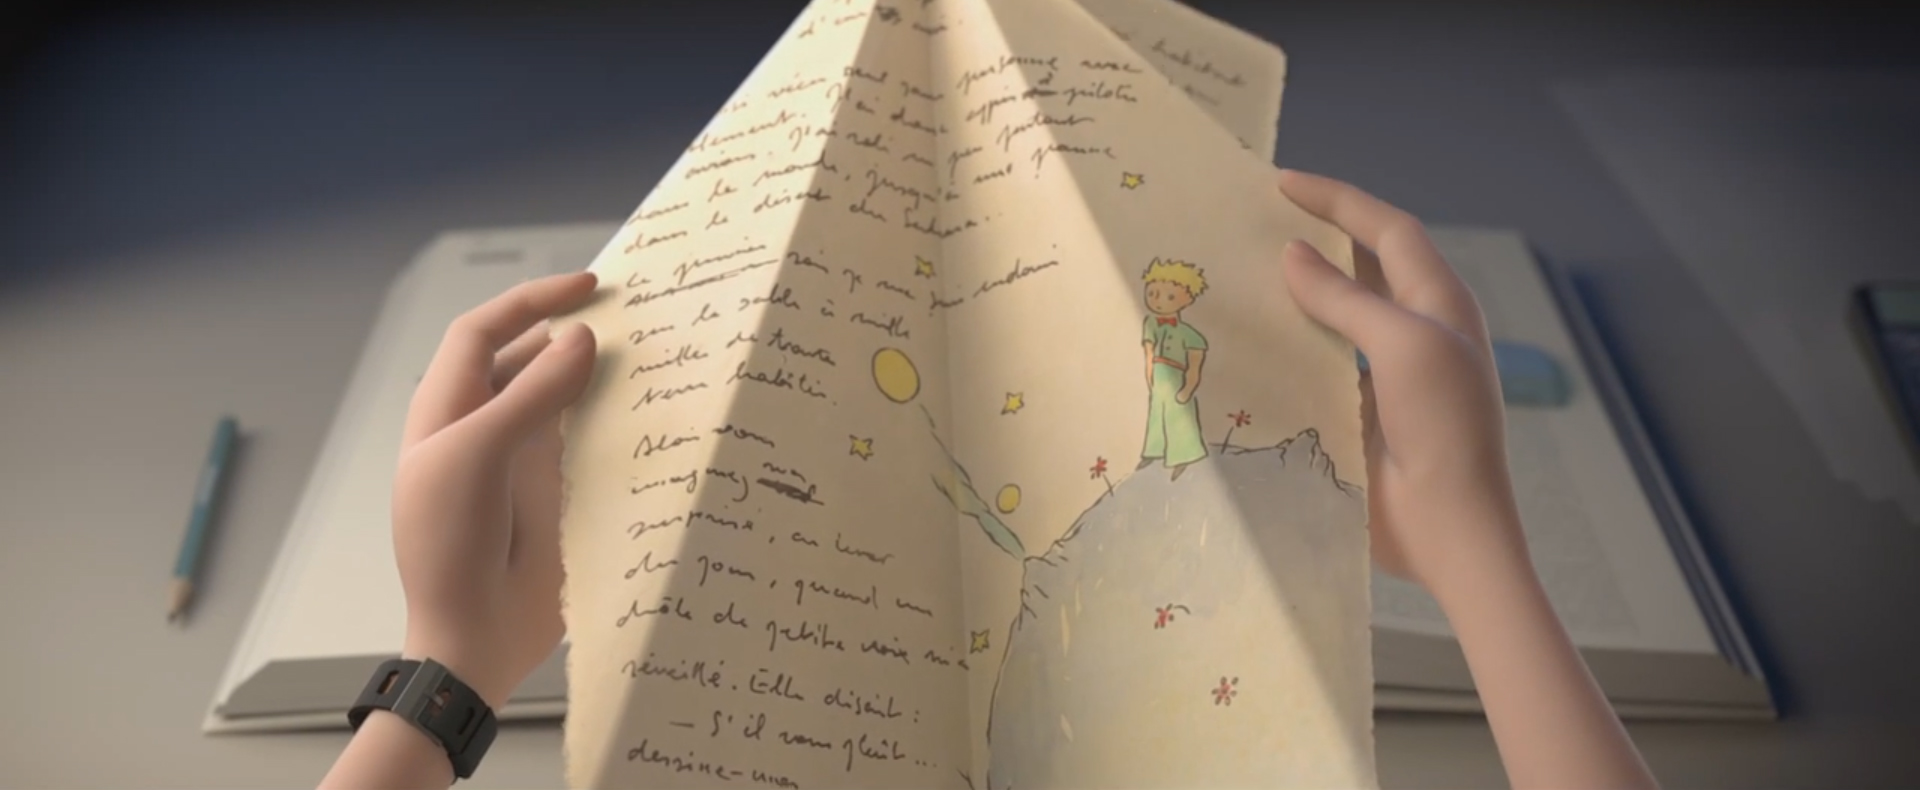 d'eau
ai vécu seul sans personne avec
J'ai donc appris à piloter
avions. J'ai volé un peu partout
dans le monde, jusqu'à une panne
dans le désert du Sahara...
Le premier soir je me suis endormi
sur le sable à mille
milles de toute
terre habitée.
Alors vous
imaginez ma
surprise, au lever
du jour, quand une
drôle de petite voix m'a
réveillé. Elle disait :
— S'il vous plaît...
dessine-moi